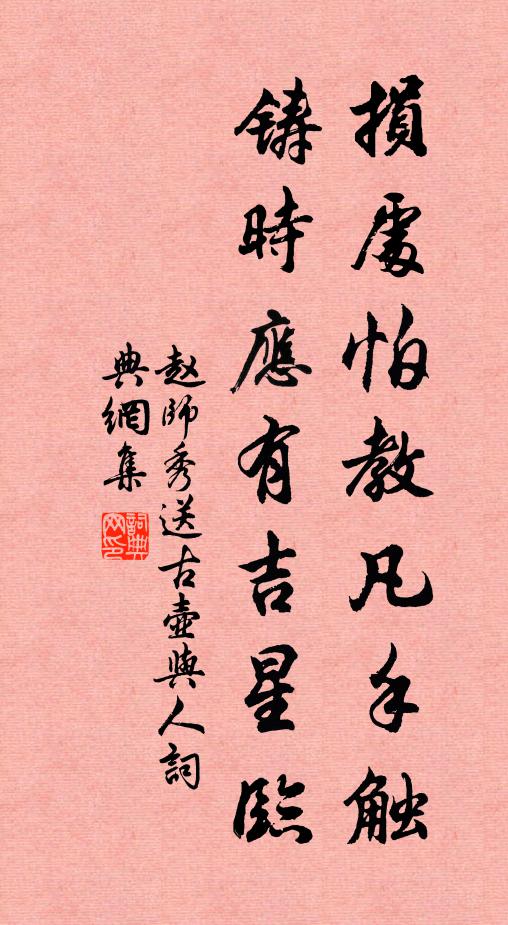 損處怕教凡手触
鋳時應有吉星臨
赵師秀送古壺與人詞
典網集
詞典網印